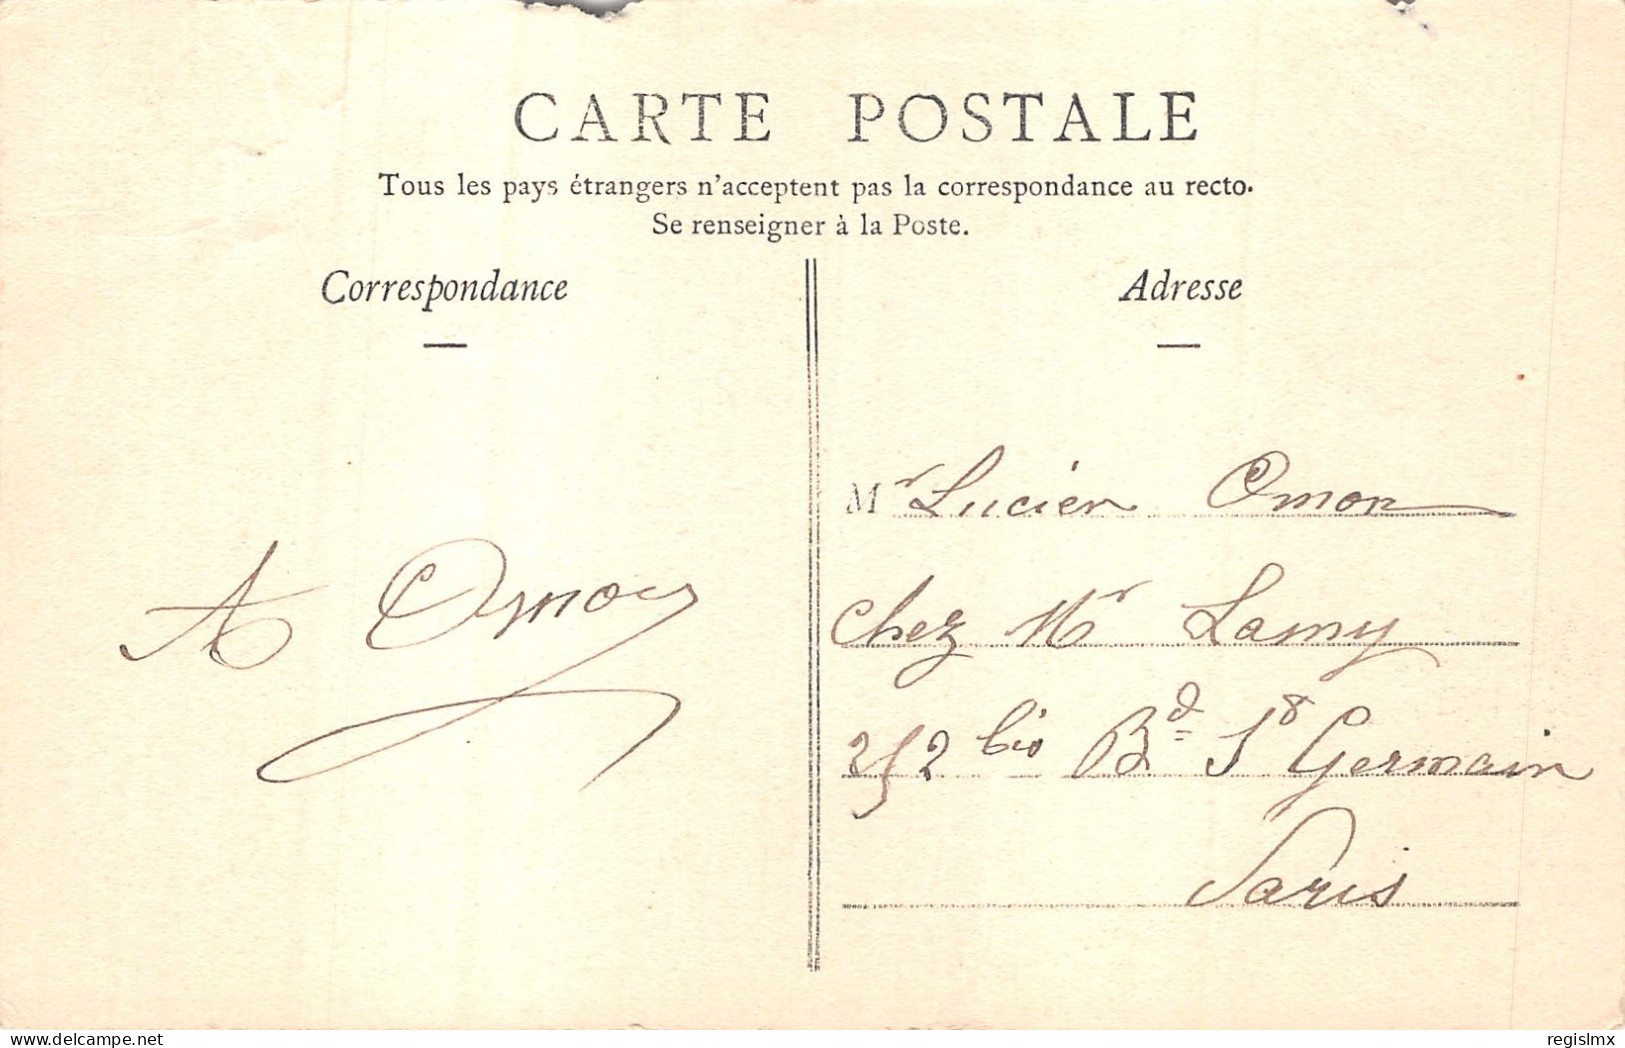 CARTE POSTALE
Tous les pays étrangers n'acceptent pas la correspondance au recto.
Se renseigner à la Poste.
Correspondance
Adresse
Mr Lucien Omon
A Omon
chez Mr Lamy
252 bis Bd St Germain
Paris
delcampe.net
regislmx